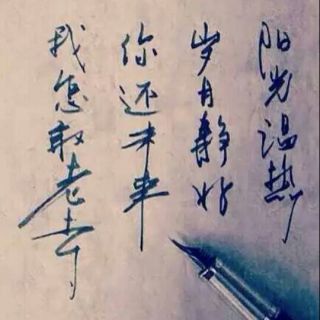 阳光温热
岁月静好
你还未来
我怎敢老去